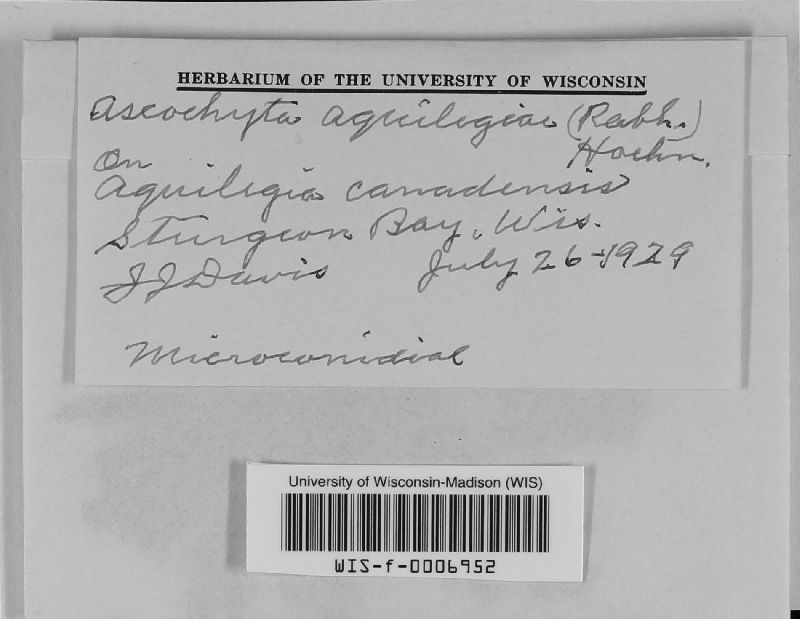 HERBARIUM OF THE UNIVERSITY OF WISCONSIN
Ascochyta aquilegiae (Rabh.)
Hoehn.
On
Aquilegia canadensis
Sturgeon Bay, Wis.
JJ Davis July 26-1929
Microconidial
University of Wisconsin-Madison (WIS)
WIS-f-0006952